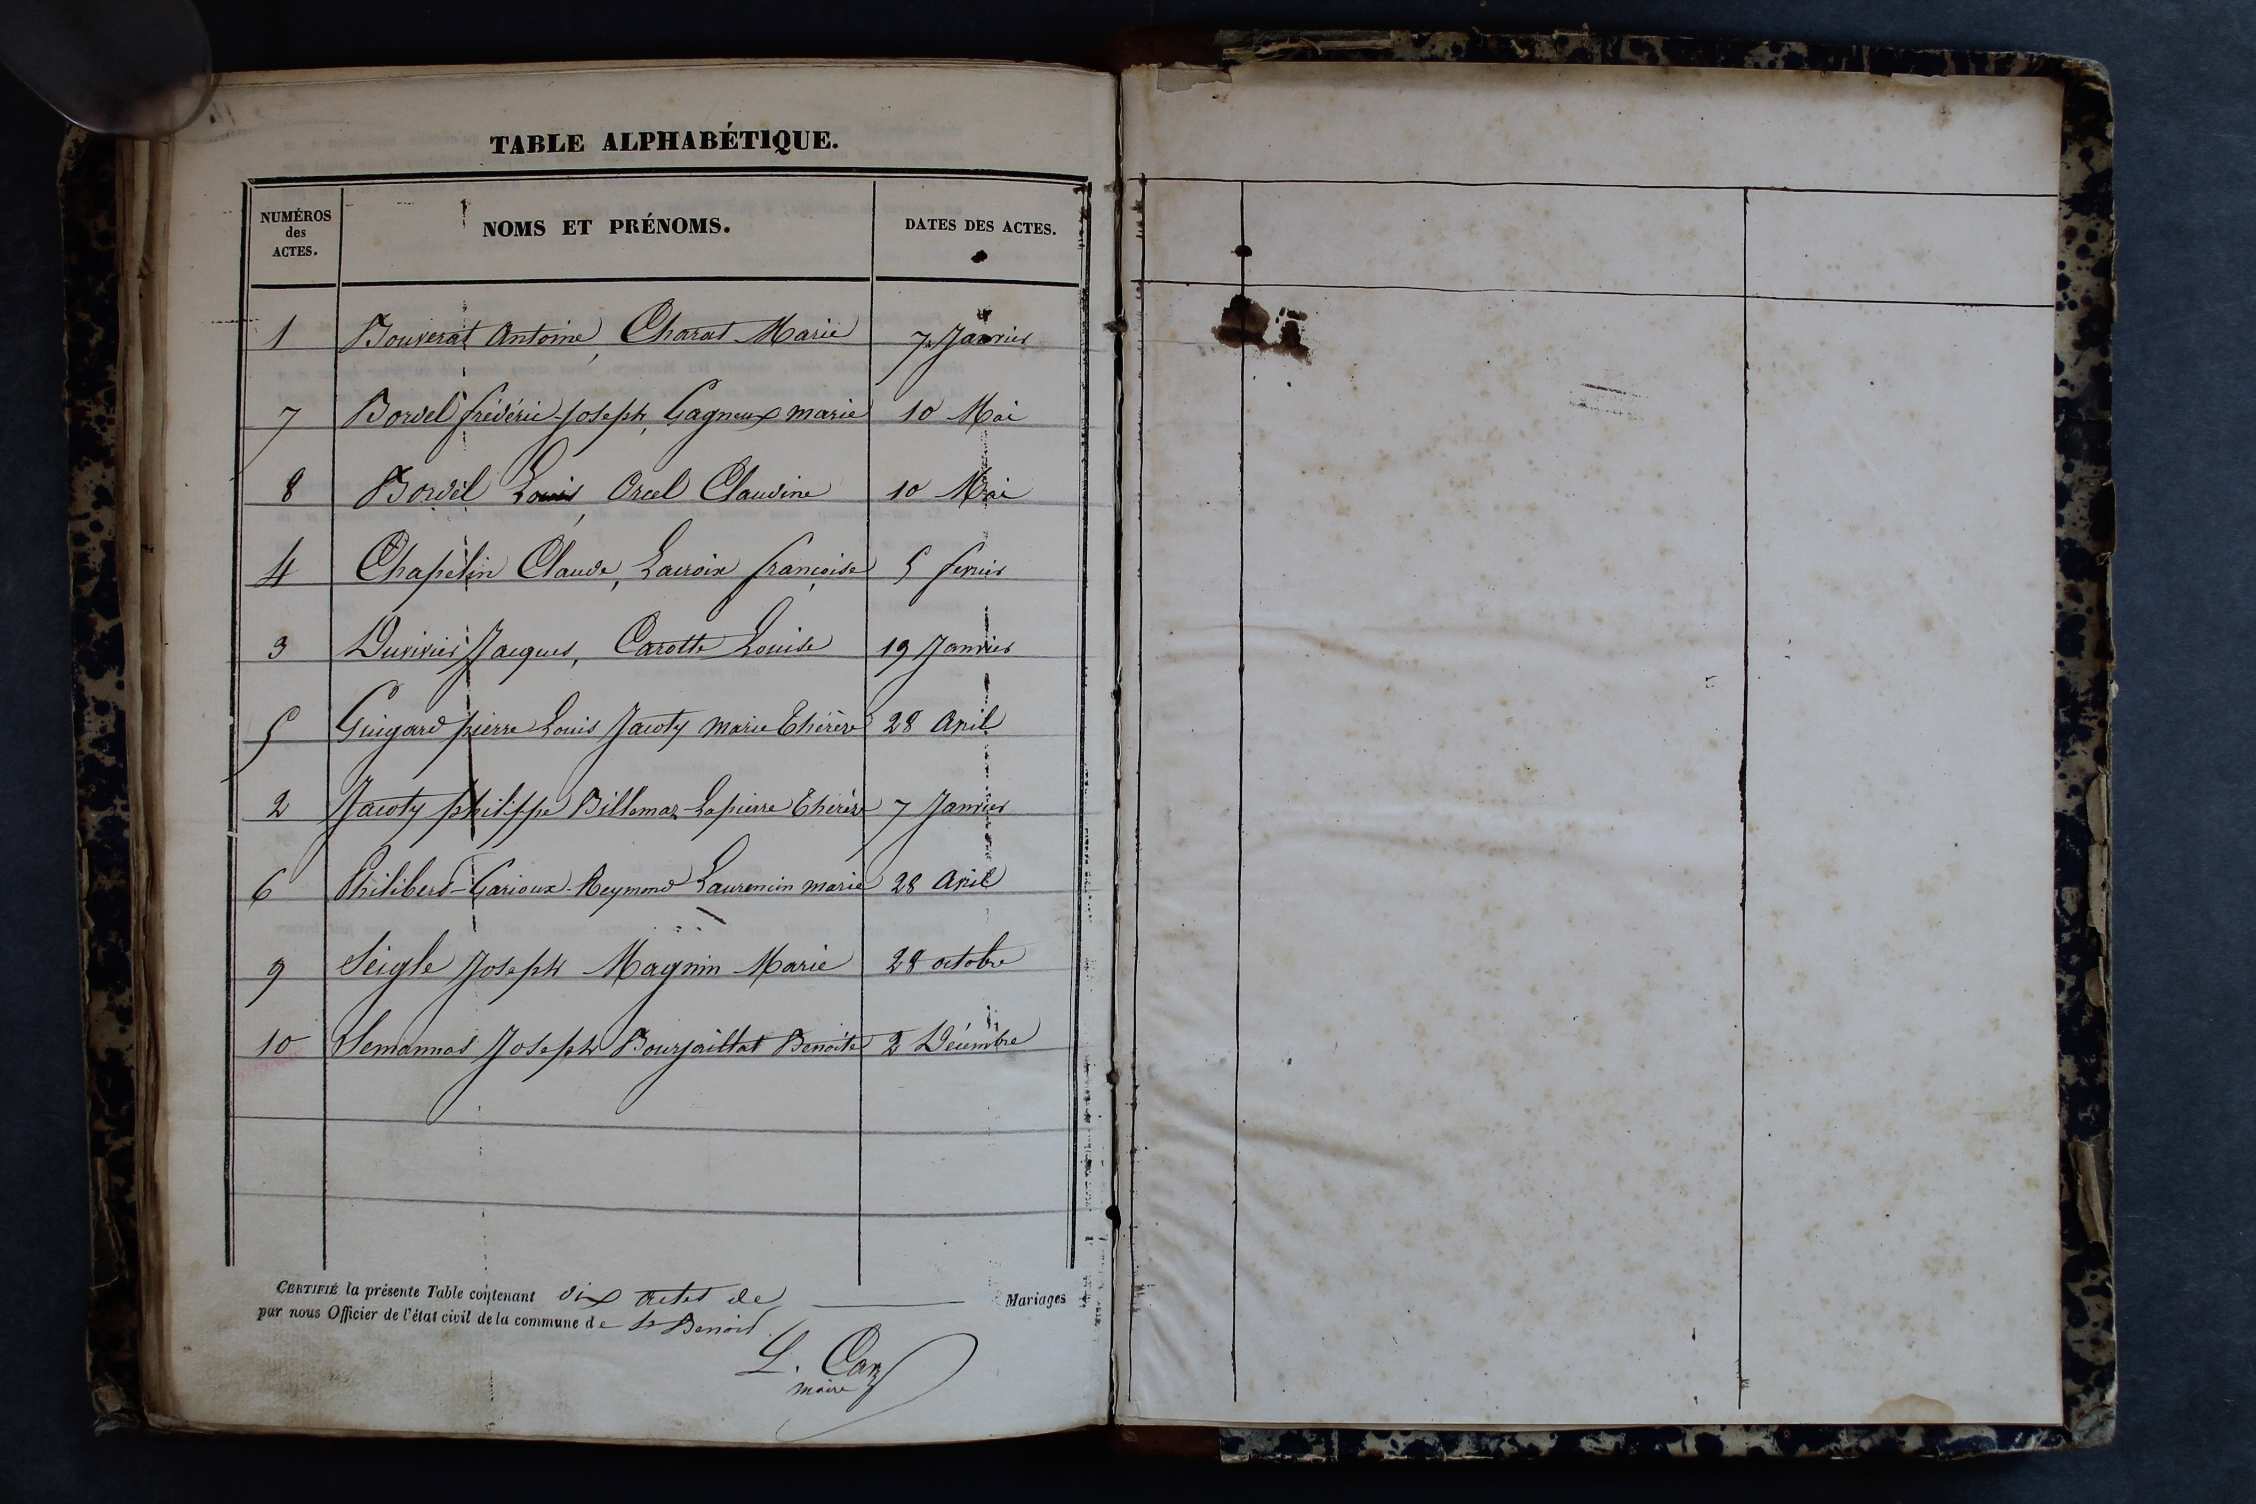 TABLE ALPHABÉTIQUE.
NUMÉROS des ACTES. NOMS ET PRÉNOMS. DATES DES ACTES.
1 Bouverat Antoine, Charat Marie 7 Janvier
7 Bordel frédéric-Joseph, Gagneux marie 10 Mai
8 Bordel Louis, Orcel Claudine 10 Mai
4 Chapelin Claude, Lacroix françoise 5 fevrier
3 Duvivier Jacques, Carotte Louise 19 Janvier
5 Guigard pierre Louis Jacoty marie Thérèse 28 Avril
2 Jacoty philippe Billemaz-Lapierre Thérèse 7 Janvier
6 Philibert-Garioux-Reymond Laurencin marie 28 Avril
9 Seigle Joseph Magnin Marie 28 octobre
10 Joseph Bourjaillat Benoite 2 Décembre
CERTIFIÉ la présente Table contenant dix actes de Mariages
par nous Officier de l'état civil de la commune de St Benoit
L. Caz
maire